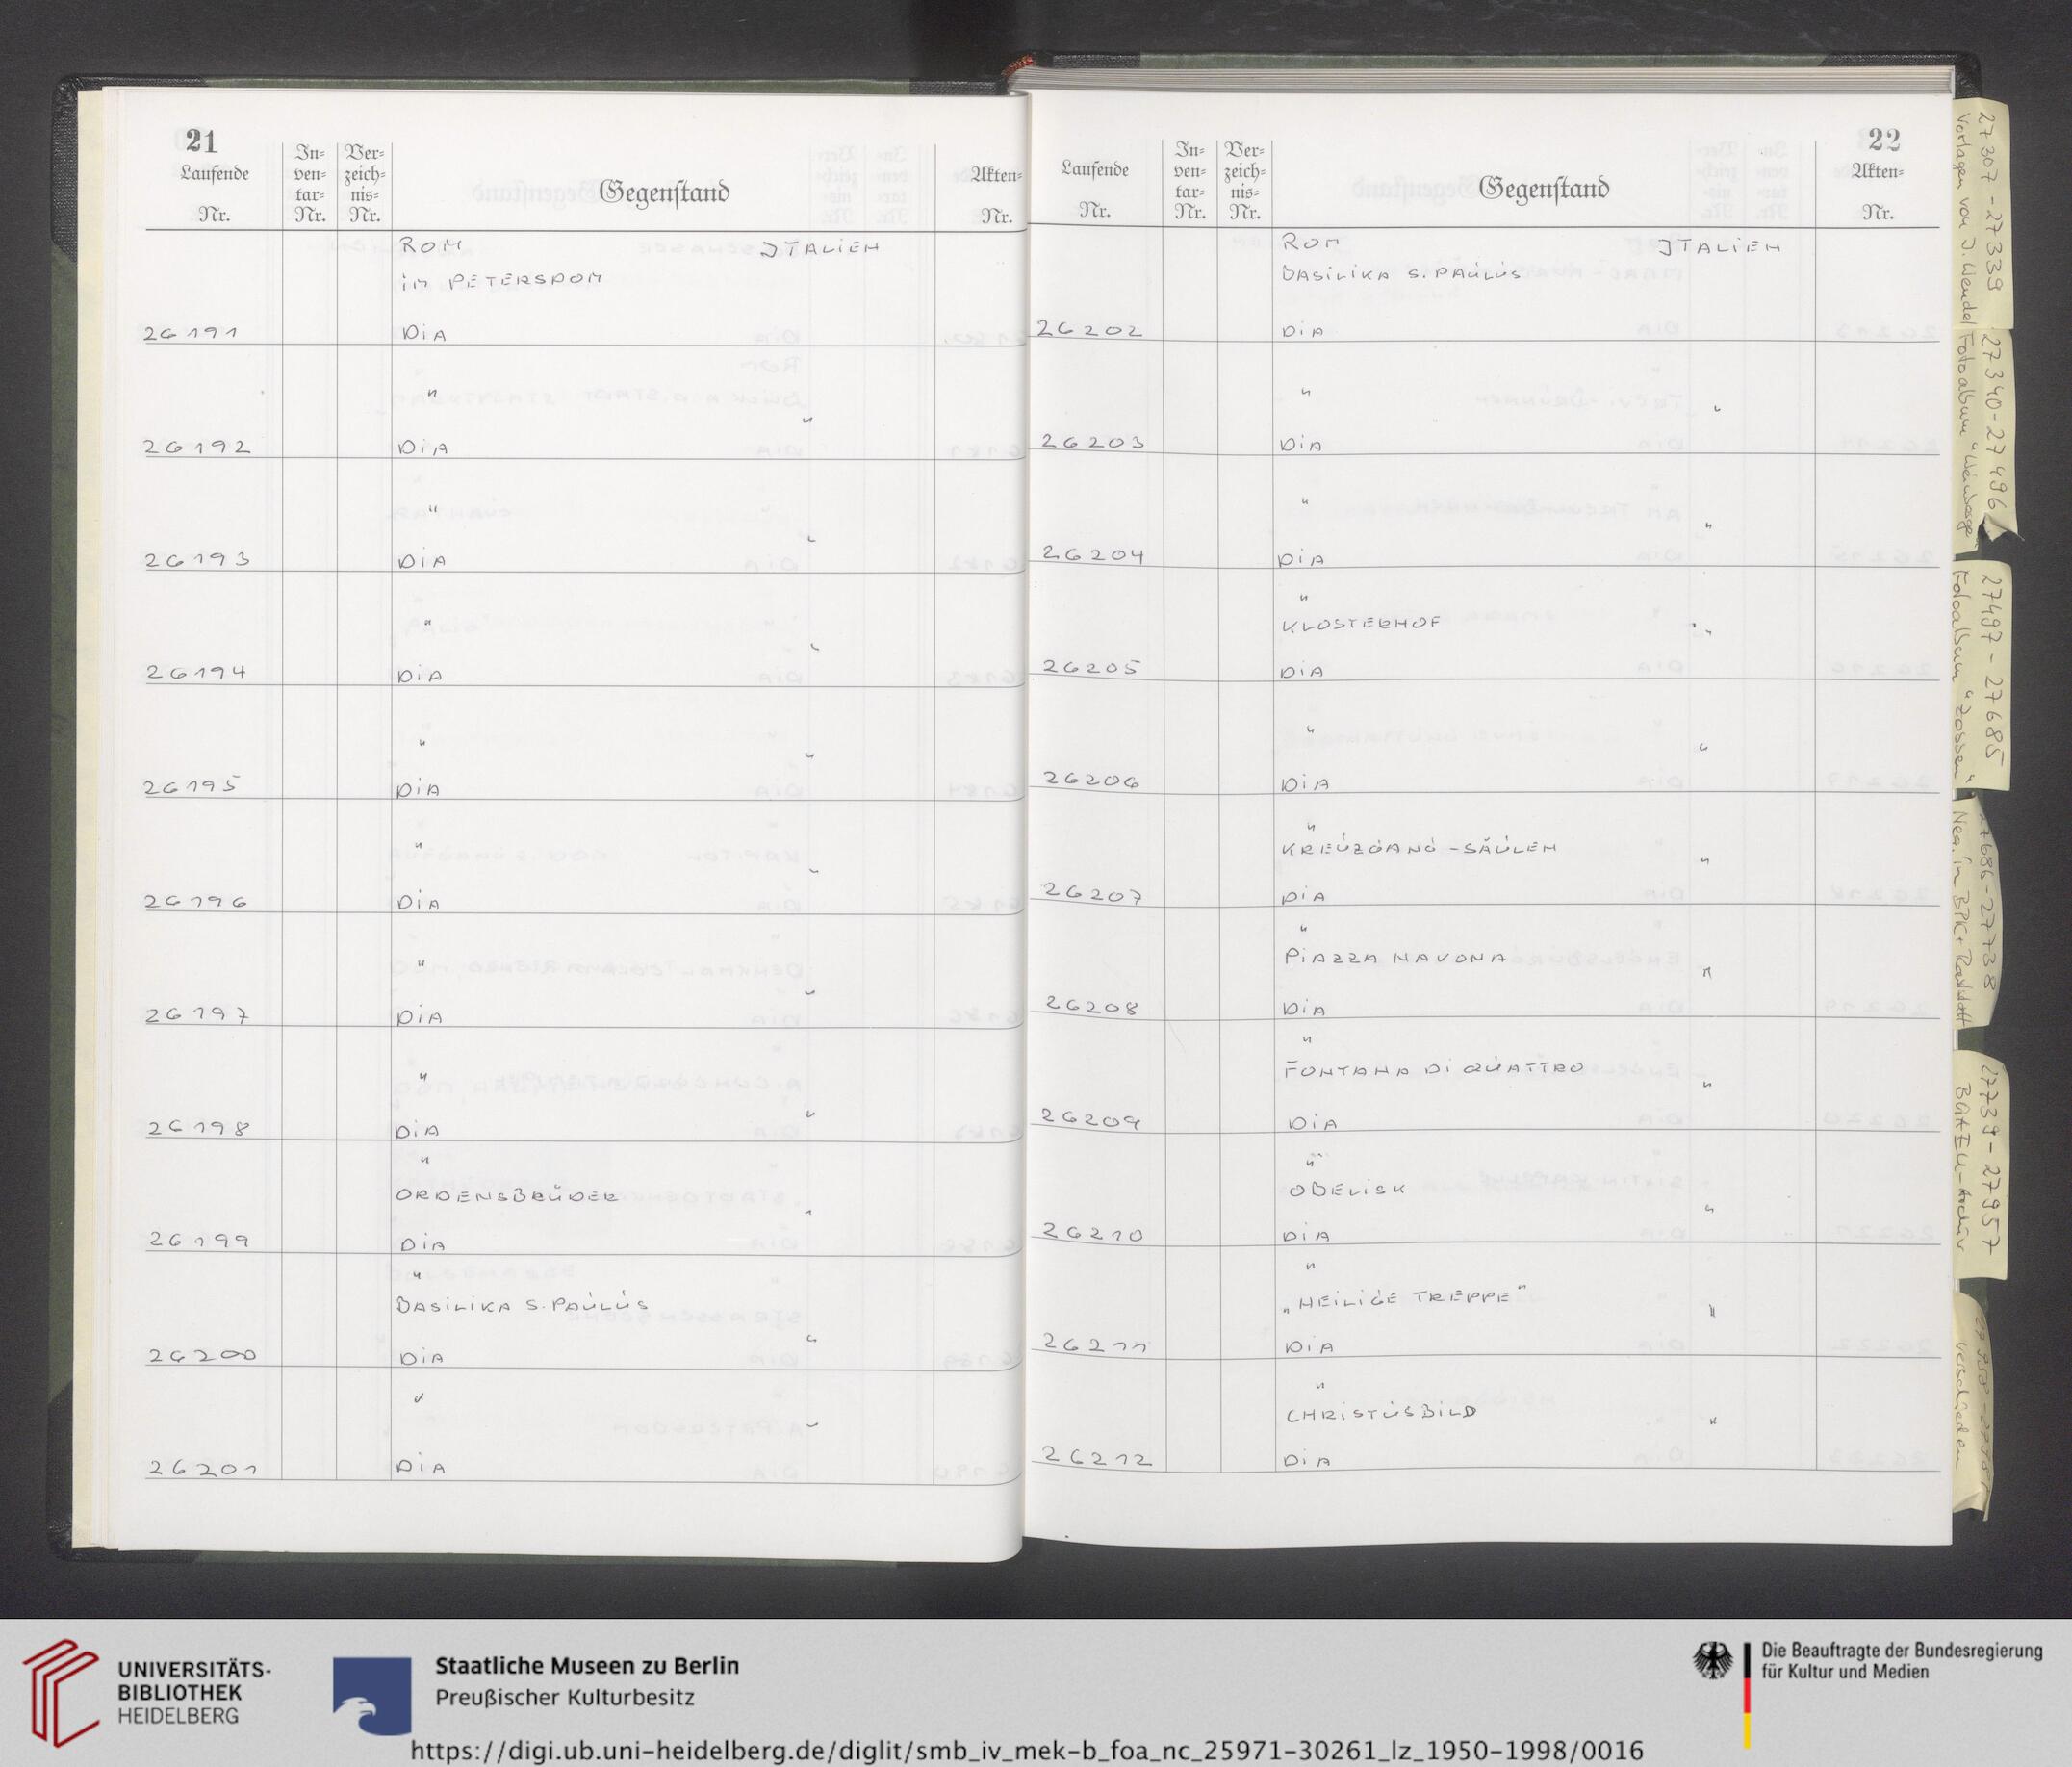 21
Laufende Nr.
In-ven-tar-Nr.
Ver-zeich-nis-Nr.
Gegenstand
Akten-Nr.
ROM JTALIEN
IM PETERSDOM
26191 DIA
" "
26192 DIA
" "
26193 DIA
" "
26194 DIA
" "
26195 DIA
" "
26196 DIA
" "
26197 DIA
" "
26198 DIA
"
ORDENSBRÜDER "
26199 DIA
"
BASILIKA S. PAULUS "
26200 DIA
" "
26201 DIA
22
Laufende Nr.
In-ven-tar-Nr.
Ver-zeich-nis-Nr.
Gegenstand
Akten-Nr.
ROM JTALIEN
BASILIKA S. PAULUS
26202 DIA
" "
26203 DIA
" "
26204 DIA
"
KLOSTERHOF "
26205 DIA
" "
26206 DIA
"
KREUZGANG-SÄULEN "
26207 DIA
"
PIAZZA NAVONA "
26208 DIA
"
FONTANA DI QUATTRO "
26209 DIA
"
OBELISK "
26210 DIA
"
„HEILIGE TREPPE" "
26211 DIA
"
CHRISTUSBILD "
26212 DIA
27307-27339
Vorlagen von J. Wendel
27340-27496
Fotoalbum
27497-27685
Fotoalbum "Zossen"
27686-27738
Neg. in BPK, Rathstett
27739-27957
BGAEU-Archiv
verschieden
UNIVERSITÄTS-
BIBLIOTHEK
HEIDELBERG
Staatliche Museen zu Berlin
Preußischer Kulturbesitz
Die Beauftragte der Bundesregierung
für Kultur und Medien
https://digi.ub.uni-heidelberg.de/diglit/smb_iv_mek-b_foa_nc_25971-30261_lz_1950-1998/0016